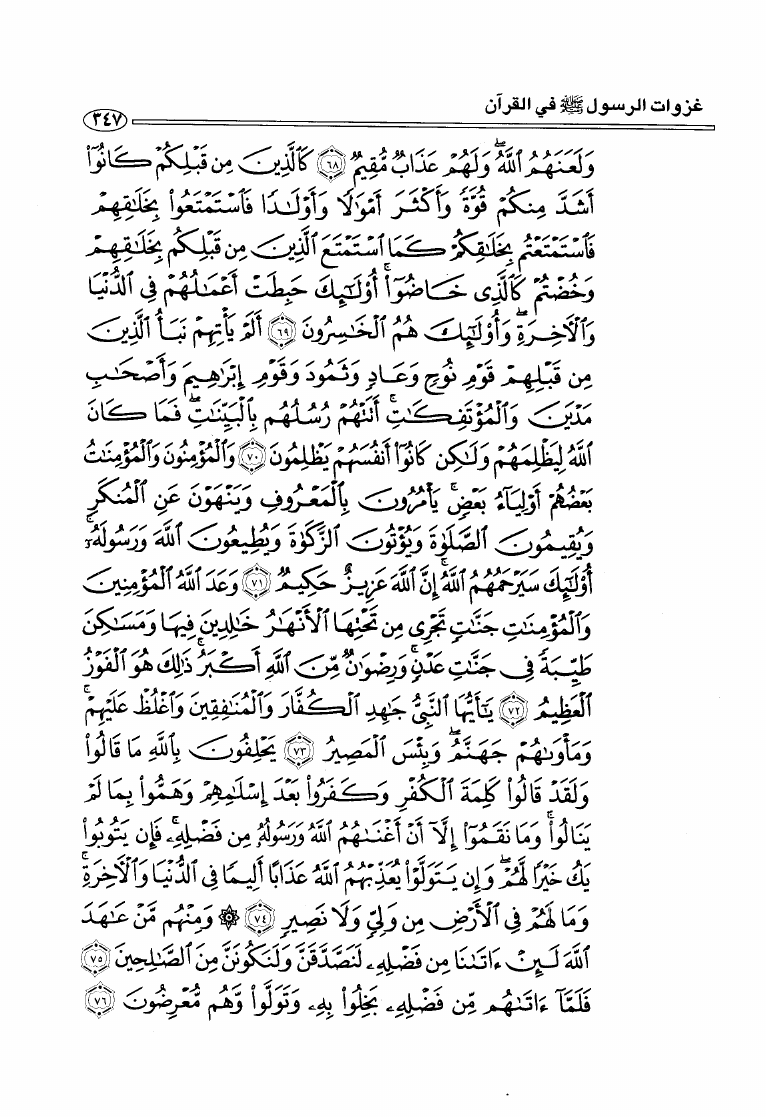 غزوات الرسول ﷺ في القرآن
٣٤٧
وَلَعَنَهُمُ ٱللَّهُۖ وَلَهُمْ عَذَابٌ مُّقِيمٌ ٦٨ كَٱلَّذِينَ مِن قَبْلِكُمْ كَانُوٓا۟
أَشَدَّ مِنكُمْ قُوَّةً وَأَكْثَرَ أَمْوَٰلًا وَأَوْلَٰدًا فَٱسْتَمْتَعُوا۟ بِخَلَٰقِهِمْ
فَٱسْتَمْتَعْتُم بِخَلَٰقِكُمْ كَمَا ٱسْتَمْتَعَ ٱلَّذِينَ مِن قَبْلِكُم بِخَلَٰقِهِمْ
وَخُضْتُمْ كَٱلَّذِى خَاضُوٓا۟ۚ أُو۟لَٰٓئِكَ حَبِطَتْ أَعْمَٰلُهُمْ فِى ٱلدُّنْيَا
وَٱلْءَاخِرَةِۖ وَأُو۟لَٰٓئِكَ هُمُ ٱلْخَٰسِرُونَ ٦٩ أَلَمْ يَأْتِهِمْ نَبَأُ ٱلَّذِينَ
مِن قَبْلِهِمْ قَوْمِ نُوحٍ وَعَادٍ وَثَمُودَ وَقَوْمِ إِبْرَٰهِيمَ وَأَصْحَٰبِ
مَدْيَنَ وَٱلْمُؤْتَفِكَٰتِۚ أَتَتْهُمْ رُسُلُهُم بِٱلْبَيِّنَٰتِۖ فَمَا كَانَ
ٱللَّهُ لِيَظْلِمَهُمْ وَلَٰكِن كَانُوٓا۟ أَنفُسَهُمْ يَظْلِمُونَ ٧٠ وَٱلْمُؤْمِنُونَ وَٱلْمُؤْمِنَٰتُ
بَعْضُهُمْ أَوْلِيَآءُ بَعْضٍۚ يَأْمُرُونَ بِٱلْمَعْرُوفِ وَيَنْهَوْنَ عَنِ ٱلْمُنكَرِ
وَيُقِيمُونَ ٱلصَّلَوٰةَ وَيُؤْتُونَ ٱلزَّكَوٰةَ وَيُطِيعُونَ ٱللَّهَ وَرَسُولَهُۥٓۚ
أُو۟لَٰٓئِكَ سَيَرْحَمُهُمُ ٱللَّهُۗ إِنَّ ٱللَّهَ عَزِيزٌ حَكِيمٌ ٧١ وَعَدَ ٱللَّهُ ٱلْمُؤْمِنِينَ
وَٱلْمُؤْمِنَٰتِ جَنَّٰتٍ تَجْرِى مِن تَحْتِهَا ٱلْأَنْهَٰرُ خَٰلِدِينَ فِيهَا وَمَسَٰكِنَ
طَيِّبَةً فِى جَنَّٰتِ عَدْنٍۚ وَرِضْوَٰنٌ مِّنَ ٱللَّهِ أَكْبَرُۚ ذَٰلِكَ هُوَ ٱلْفَوْزُ
ٱلْعَظِيمُ ٧٢ يَٰٓأَيُّهَا ٱلنَّبِىُّ جَٰهِدِ ٱلْكُفَّارَ وَٱلْمُنَٰفِقِينَ وَٱغْلُظْ عَلَيْهِمْۚ
وَمَأْوَىٰهُمْ جَهَنَّمُۖ وَبِئْسَ ٱلْمَصِيرُ ٧٣ يَحْلِفُونَ بِٱللَّهِ مَا قَالُوا۟
وَلَقَدْ قَالُوا۟ كَلِمَةَ ٱلْكُفْرِ وَكَفَرُوا۟ بَعْدَ إِسْلَٰمِهِمْ وَهَمُّوا۟ بِمَا لَمْ
يَنَالُوا۟ۚ وَمَا نَقَمُوٓا۟ إِلَّآ أَنْ أَغْنَىٰهُمُ ٱللَّهُ وَرَسُولُهُۥ مِن فَضْلِهِۦۚ فَإِن يَتُوبُوا۟
يَكُ خَيْرًا لَّهُمْۖ وَإِن يَتَوَلَّوْا۟ يُعَذِّبْهُمُ ٱللَّهُ عَذَابًا أَلِيمًا فِى ٱلدُّنْيَا وَٱلْءَاخِرَةِۚ
وَمَا لَهُمْ فِى ٱلْأَرْضِ مِن وَلِىٍّ وَلَا نَصِيرٍ ٧٤ ۞ وَمِنْهُم مَّنْ عَٰهَدَ
ٱللَّهَ لَئِنْ ءَاتَىٰنَا مِن فَضْلِهِۦ لَنَصَّدَّقَنَّ وَلَنَكُونَنَّ مِنَ ٱلصَّٰلِحِينَ ٧٥
فَلَمَّآ ءَاتَىٰهُم مِّن فَضْلِهِۦ بَخِلُوا۟ بِهِۦ وَتَوَلَّوا۟ وَّهُم مُّعْرِضُونَ ٧٦